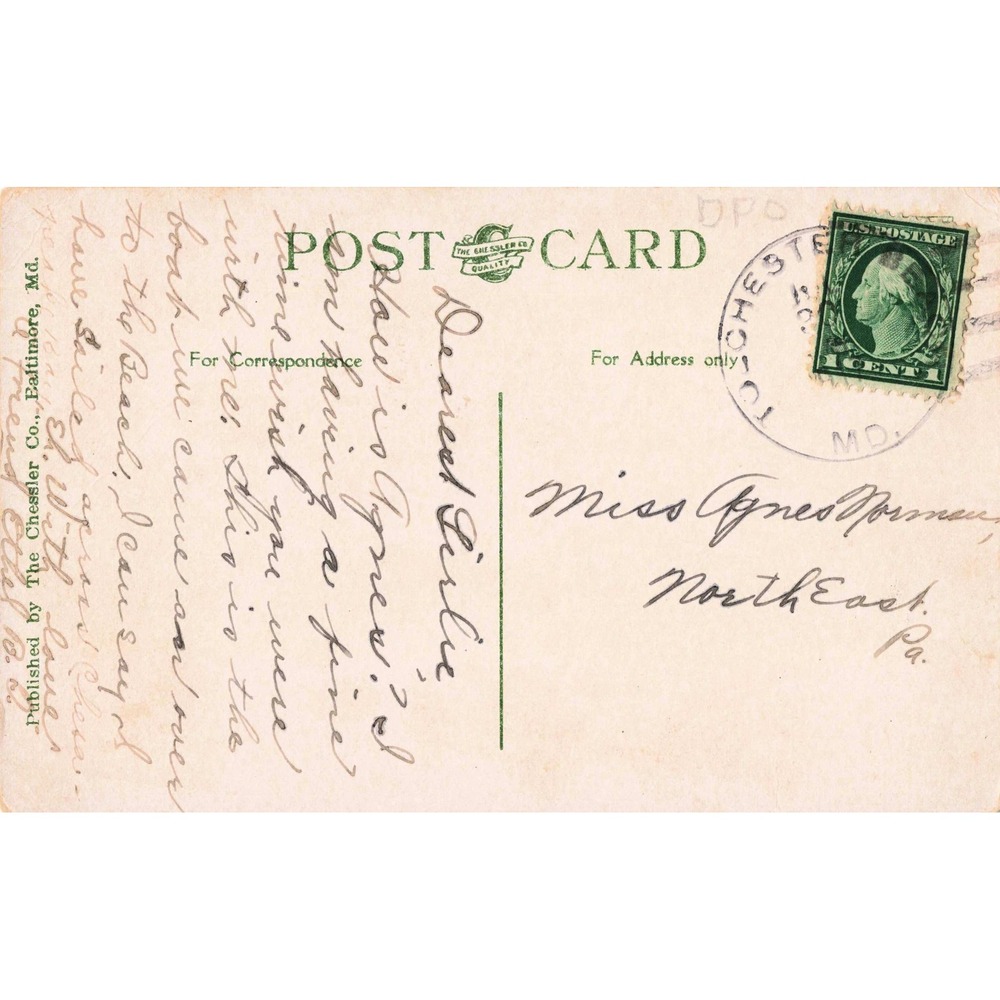 DPO
POST CARD
THE CHESSLER CO.
QUALITY
U.S. POSTAGE
1 CENT 1
TO-CHESTE
MD.
For Correspondence
For Address only
Dearest Girlie,
How is Agnes? I
am having a fine
time wish you were
with me. This is the
boat we came on over
to the Beach, I can say I
have sailed across Chesa-
With love
Ethel B.
Miss Agnes Norman,
North East.
Pa.
Published by The Chessler Co., Baltimore, Md.